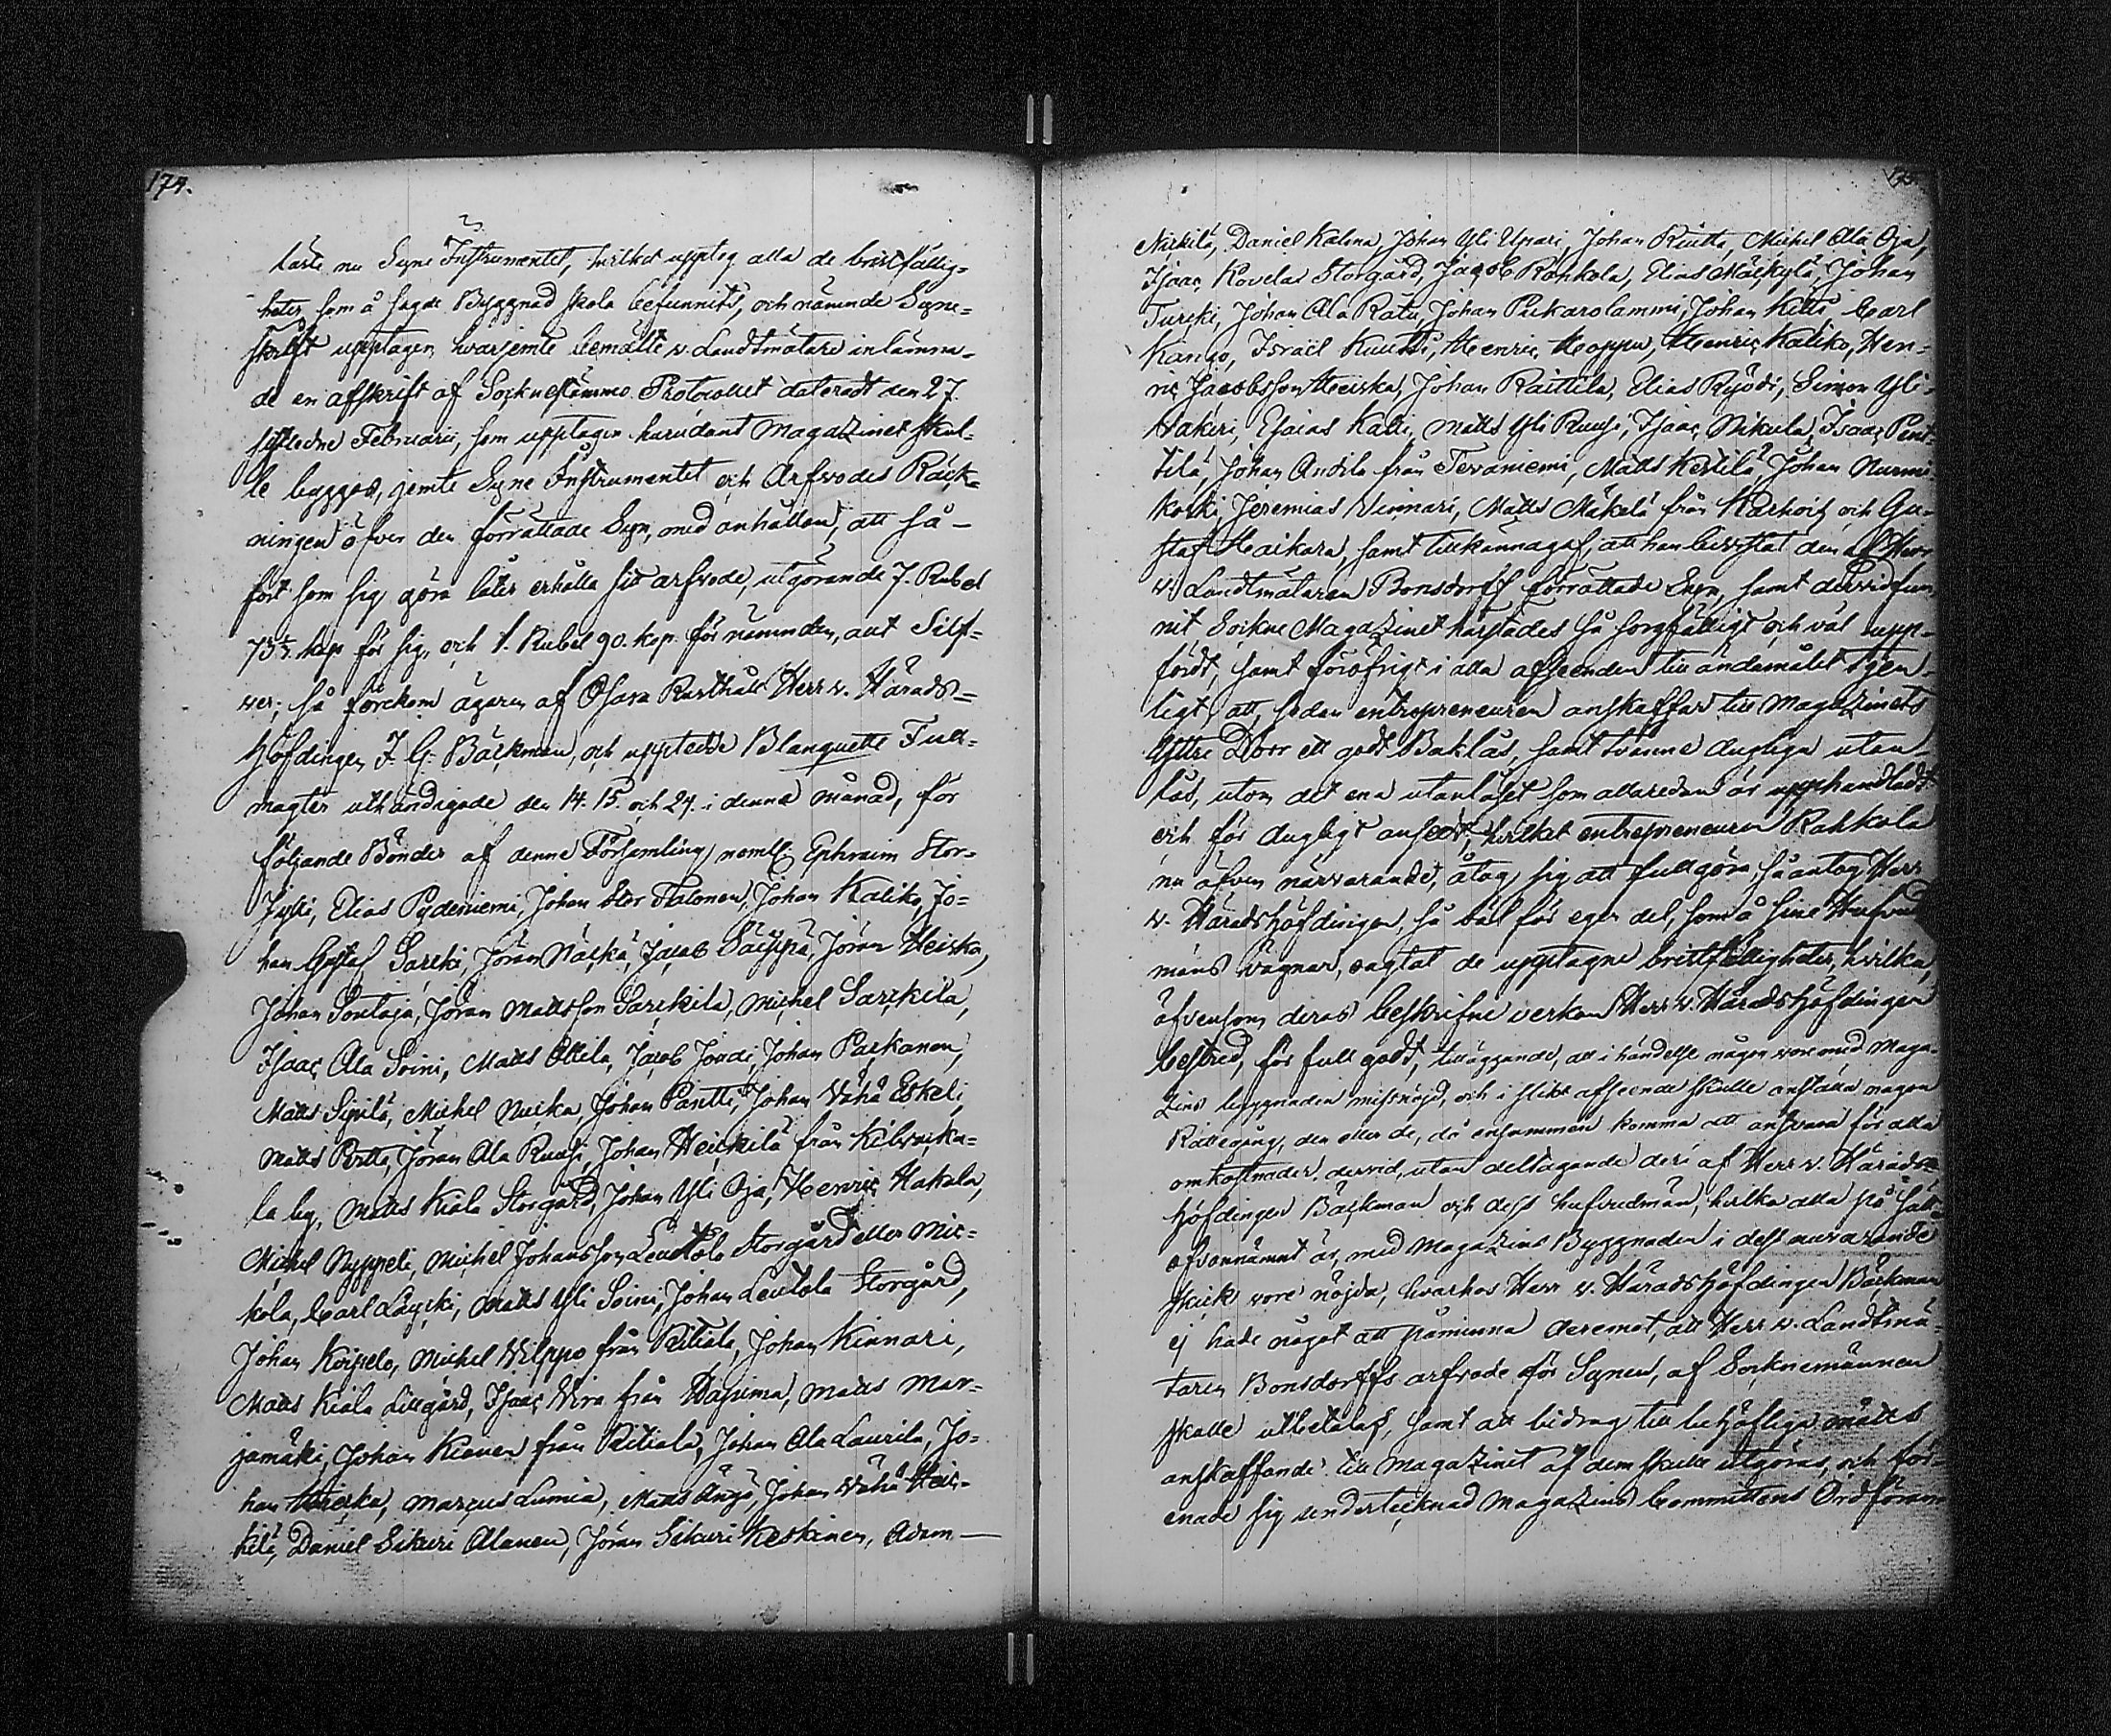 174.
laste nu Syne Instrumentet, hvilket upptog alla de bristfällig-
heter, som å sagde Byggnad skola befunnits, och nämnde Syne-
skrift upptager, hvarjemte bemälte v. Landtmätare inlämna-
de en afskrift af Socknestämmo Protocollet dateradt den 27.
sistledne Februarii, som upptager hurudant Magazinet skul-
le byggas, jemte Syne Instrumentet och Arfvodes Räck-
ningen öfver den förrättade Syn, med anhållan, att så
fort som sig göra låter erhålla sit arfvode, utgörande 7. Rubel
73½. kop. för sig, och 1. Rubel 90. kop. för nämnden, alt Silf-
ver; så förekom ägaren af Ohara Rusthåll Herr v. Härads-
höfdingen J. G. Bäckman, och upptedde Blanquette Full-
magter uthändigade den 14. 15. och 24. i denna månad, för
följande Bönder af denne Församling, neml. Ephraim Stor-
Jyski, Elias Pydeniemi, Johan Stor Talonen, Johan Kaliko, Jo-
han Gustaf Sarcki, Jöran Näckä, Jacob Säippä, Jöran Heiska,
Johan Sontaja, Jöran Mattsson Sarckila, Michel Sarckila,
Isaac Ala Soini, Matts Ollila, Jacob Joudi, Johan Parkanen,
Matts Sipilä, Michel Nucka, Johan Pantti, Johan Vähä Eskeli,
Matts Potta, Jöran Ala Ruusi, Johan Heickilä från Kilvacka-
la by, Matts Kiala Storgård, Johan Yli Oja, Henric Hakola,
Michel Nyppeli, Michel Johansson Leutola Storgård eller Mic-
kola, Carl Läycki, Matts Yli Soini, Johan Leutola Storgård,
Johan Koipelo, Michel Vilppo från Ritiala, Johan Kinnari,
Matts Kiala Lillgård, Isaac Vira från Hapima, Matts Mar-
jamäki, Johan Kianen från Ritiala, Johan Ala Laurila, Jo-
han, Marcus Lumia, Matts Ängö, Johan Vähä Heic-
kilä, Daniel Sikuri Alanen, Jöran Sikuri Keskinen, Adam
Nickilä, Daniel Kalina, Johan Yli Upari, Johan Riutta, Michel Ala Oja,
Isaac Kovelas Storgård, Jacob Rahkola, Elias Mäckylä, Johan
Turcki, Johan Ala Ratu, Johan Pukarolammi, Johan Kitti Carl
Kango, Israël Kuutti, Henric Hoppu, Henric Kaliko, Hen-
ric Jacobsson Heiska, Johan Raittila, Elias Ryödi, Simon Yli-
Hakeri, Esaias Kalli, Matts Yli Ruusi, Isaac Nikula, Isaac Pent-
tilä, Johan Andila från Tevaniemi, Matts Kestilä, Johan Nurmi-
koski, Jeremias Vinnari, Matts Mäkelä från Karhois och Gu-
staf Haikara, samt tillkännagaf, att han bevistat den af Herr
v. Landtmätaren Bonsdorff förrättade Syn, samt dervid fun-
nit Sockne Magazinet härstädes så sorgfälligt och väl upp-
fördt, samt föröfrigt i alla afseenden till ändamålet tjen-
ligt, att, sedan entrepreneuren anskaffar till Magazinets
Yttre Dörr ett godt Baklås, samt tvänne duglige utan-
lås, utom det ena utanlåset som allaredan är upphandladt
och för dugligt ansedt, hvilket entrepreneuren Rahkola
nu äfven närvarande, åtog sig att fullgöra, så antog Herr
v. Häradshöfdingen, så väl för egen del, som å sine Hufvud-
mäns vägnar, oagtat de upptagne bristfälligheter, hvilka,
äfvensom deras beskrifne verkan Herr v. Häradshöfdingen
bestred, för full godt, tilläggande, att i händelse någon vore med Maga-
zins byggnaden missnöjd, och i slikt afseende skulle anställa någon
Rättegång, den eller de, då ensammen komma att ansvara för alla
omkostnader dervid, utan deltagande deri af Herr v. Härads-
höfdingen Bäckman och dess hufvudmän, hvilka alla på sätt
ofvannämnt är, med Magazins Byggnaden i dess nuvarande
skick vore nöjda, hvarhos Herr v. Häradshöfdingen Bäckman
ej hade något att påminna deremot, att Herr v. Landtmä-
taren Bonsdorffs arfvode för Synen, af Socknemännen
skulle utbetalas, samt att bidrag till behöflige mätts
anskaffande till Magazinet af dem skulle utgöras, och för-
enade sig undertecknad Magazins Committens Ordförande